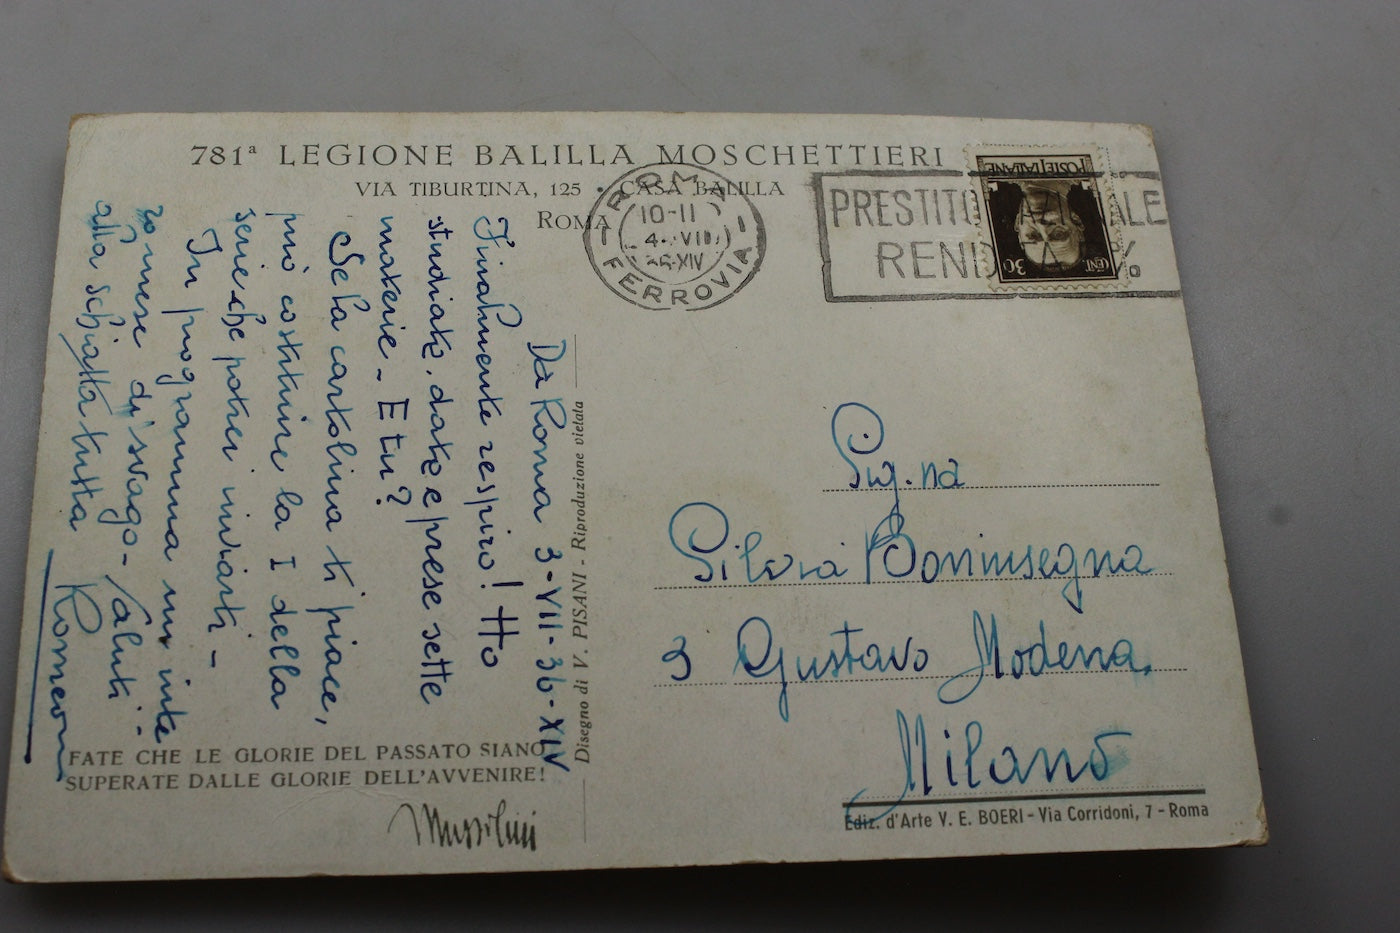 781ª LEGIONE BALILLA MOSCHETTIERI
VIA TIBURTINA, 125 • CASA BALILLA
ROMA
ROMA
10-11
4 VII
XIV
FERROVIA
PRESTITO
REND
POSTE ITALIANE
CENT. 30
Da Roma 3-VII-36-XIV
Finalmente respiro! Ho
studiato, dato e prese sette
materie - E tu?
Se la cartolina ti piace,
può costituire la I della
serie che potrei inviarti -
In programma un inte
ro mese di svago - Saluti -
alla schiatta tutta
Romeo
FATE CHE LE GLORIE DEL PASSATO SIANO
SUPERATE DALLE GLORIE DELL'AVVENIRE!
Mussolini
Disegno di V. PISANI - Riproduzione vietata
Sig.na
Silvia Boninsegna
3 Gustavo Modena.
Milano
Ediz. d'Arte V. E. BOERI - Via Corridoni, 7 - Roma